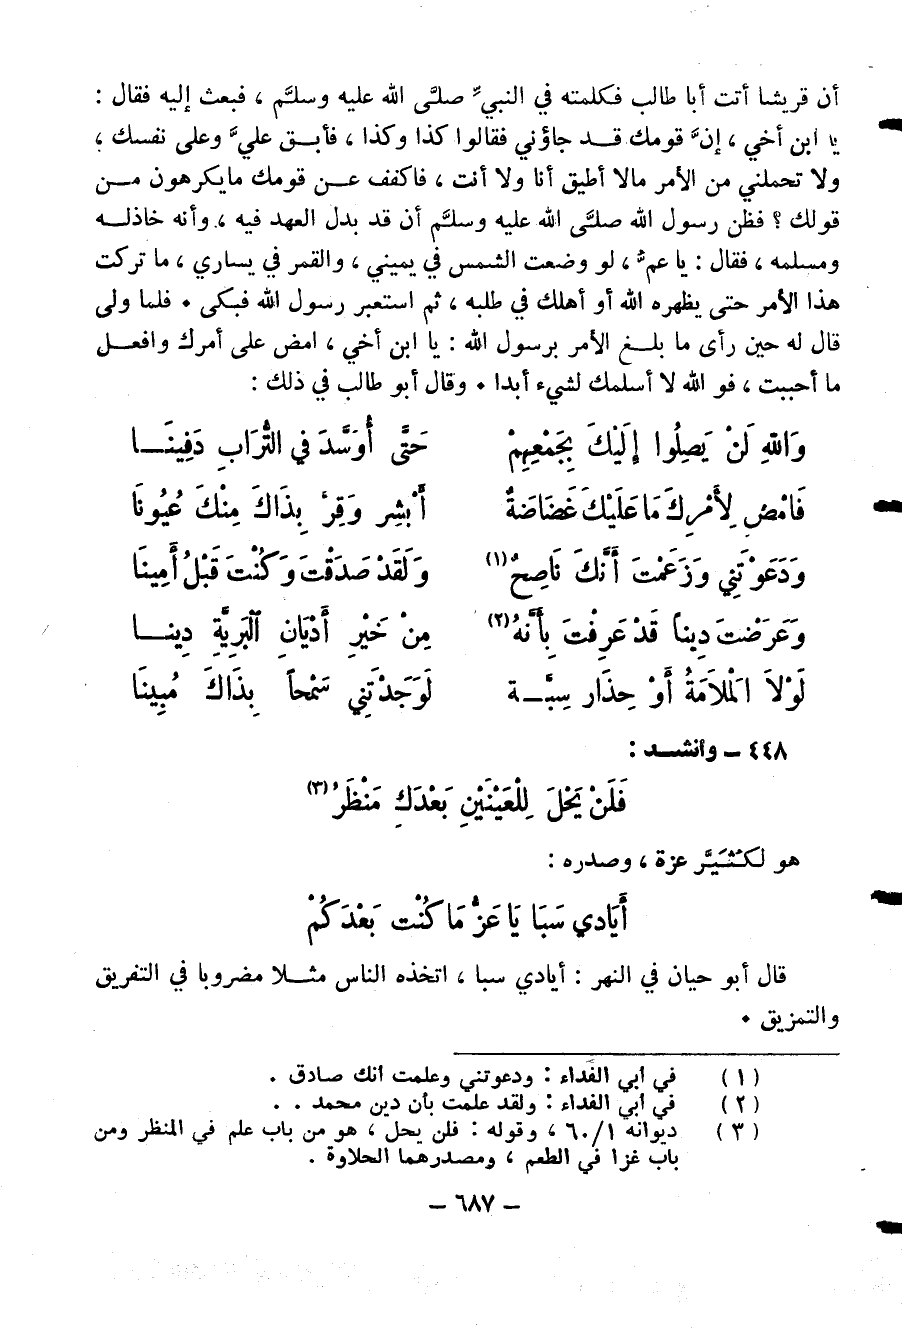 أن قريشا أتت أبا طالب فكلمته في النبيّ صلَّى الله عليه وسلَّم ، فبعث إليه فقال :
يا ابن أخي ، إنّ قومك قد جاؤني فقالوا كذا وكذا ، فأبق عليّ وعلى نفسك ،
ولا تحملني من الأمر مالا أطيق أنا ولا أنت ، فاكفف عن قومك مايكرهون من
قولك ؟ فظن رسول الله صلَّى الله عليه وسلَّم أن قد بدل العهد فيه ، وأنه خاذله
ومسلمه ، فقال : يا عمّ ، لو وضعت الشمس في يميني ، والقمر في يساري ، ما تركت
هذا الأمر حتى يظهره الله أو أهلك في طلبه ، ثم استعبر رسول الله فبكى . فلما ولى
قال له حين رأى ما بلغ الأمر برسول الله : يا ابن أخي ، امض على أمرك وافعل
ما أحببت ، فو الله لا أسلمك لشيء أبدا . وقال أبو طالب في ذلك :
وَاللهِ لَنْ يَصِلُوا إِلَيْكَ بِجَمْعِهِمْ حَتَّى أُوَسَّدَ في التُّرَابِ دَفِينَا
فَامْضِ لِأَمْرِكَ مَا عَلَيْكَ غَضَاضَةٌ أَبْشِر وَقِرْ بِذَاكَ مِنْكَ عُيُونَا
وَدَعَوْتَنِي وَزَعَمْتَ أَنَّكَ نَاصِحٌ (١) وَلَقَدْ صَدَقْتَ وَكُنْتَ قَبْلُ أَمِينَا
وَعَرَضْتَ دِيناً قَدْ عَرِفْتَ بِأَنَّهُ (٢) مِنْ خَيْرِ أَدْيَانِ الْبَرِيَّةِ دِينا
لَوْلاَ الْمَلاَمَةُ أَوْ حِذَار سِبَّة لَوَجَدْتَنِي سَمْحاً بِذَاكَ مُبِينَا
٤٤٨ ـ وانشد :
فَلَنْ يَحْلَ لِلْعَيْنَيْنِ بَعْدَكِ مَنْظَرُ (٣)
هو لكثَيَّر عزة ، وصدره :
أَيَادي سَبَا يَا عَزُّ مَا كُنْت بَعْدَكُمْ
قال أبو حيان في النهر : أيادي سبا ، اتخذه الناس مثلا مضروبا في التفريق
والتمزيق .
(١) في أبي الفداء : ودعوتني وعلمت انك صادق .
(٢) في أبي الفداء : ولقد علمت بأن دين محمد . .
(٣) ديوانه ١/٦٠ ، وقوله : فلن يحل ، هو من باب علم في المنظر ومن
باب غزا في الطعم ، ومصدرهما الحلاوة .
ـ ٦٨٧ ـ